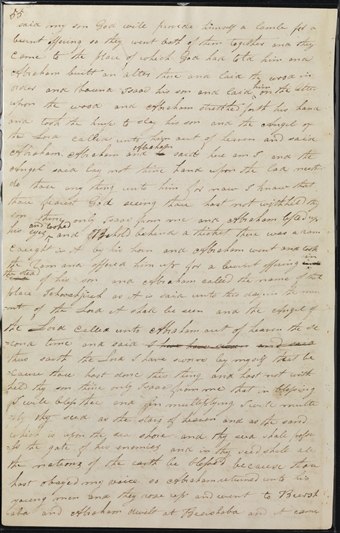 55
said my son God will provide himself a lamb for a
burnt offering so they went both of them together and they
came to the place of which God had told him and
Abraham built an alter there and laid the wood in
order and bound Isaac his son and laid him on the alter
upon the wood and Abraham stretched forth his hand
and took the knife to slay his son and the Angel of
the Lord called unto him out of heaven and said
Abraham Abraham and Abraham said here am I and the
Angel said lay not thine hand upon the lad neither
do thou any thing unto him for now I know that
thou fearest God seeing thou hast not withheld thy
son thine only Isaac from me and Abraham lifted up
his eyes and looked and behold behind a thicket there was a ram
caught in it by his horns and Abraham went and took
the ram and offered him up for a burnt offering in
the stead of his son and Abraham called the name of that
place as it is said unto this day in the mo
unt of the Lord it shall be seen and the Angel of
the Lord called unto Abraham out of heaven the se
cond time and said
thus saith the Lord I have sworn by myself that be
cause thou hast done this thing and hast not with
held thy son thine only Isaac from me that in blessing
I will bless thee and in multiplying I will multi
ply thy seed as the stars of heaven and as the sand
which is upon the sea shore and thy seed shall poss
ess the gate of his enemies and in thy seed shall all
the nations of the earth be blessed because thou
hast obeyed my voice so Abraham returned unto his
young men and they rose up and went to Beersh
eba and Abraham dwelt at Beersheba and it came